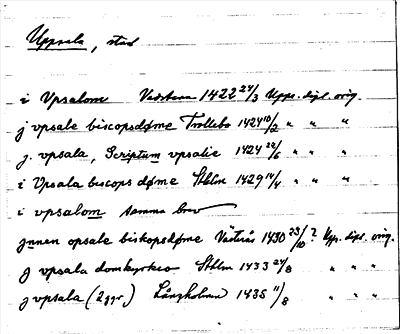 Uppsala, stad
i Vpsalom Vadstena 1422 24/3 Upps. dipl. orig.
j vpsale biscopsdøme Trollebo 1424 10/2 " " "
j. vpsala, Scriptum vpsalie 1424 22/6 " " "
i Vpsala biscops døme Sthlm 1429 14/4 " " "
i vpsalom samma brev
jnnen opsale biskopsdøme Västerås 1430 23/10? Upp. dipl. orig.
j vpsala domkyrkeo Sthlm 1433 24/8 " " "
j vpsala (2 ggr) Långholmen 1435 11/8 " " "